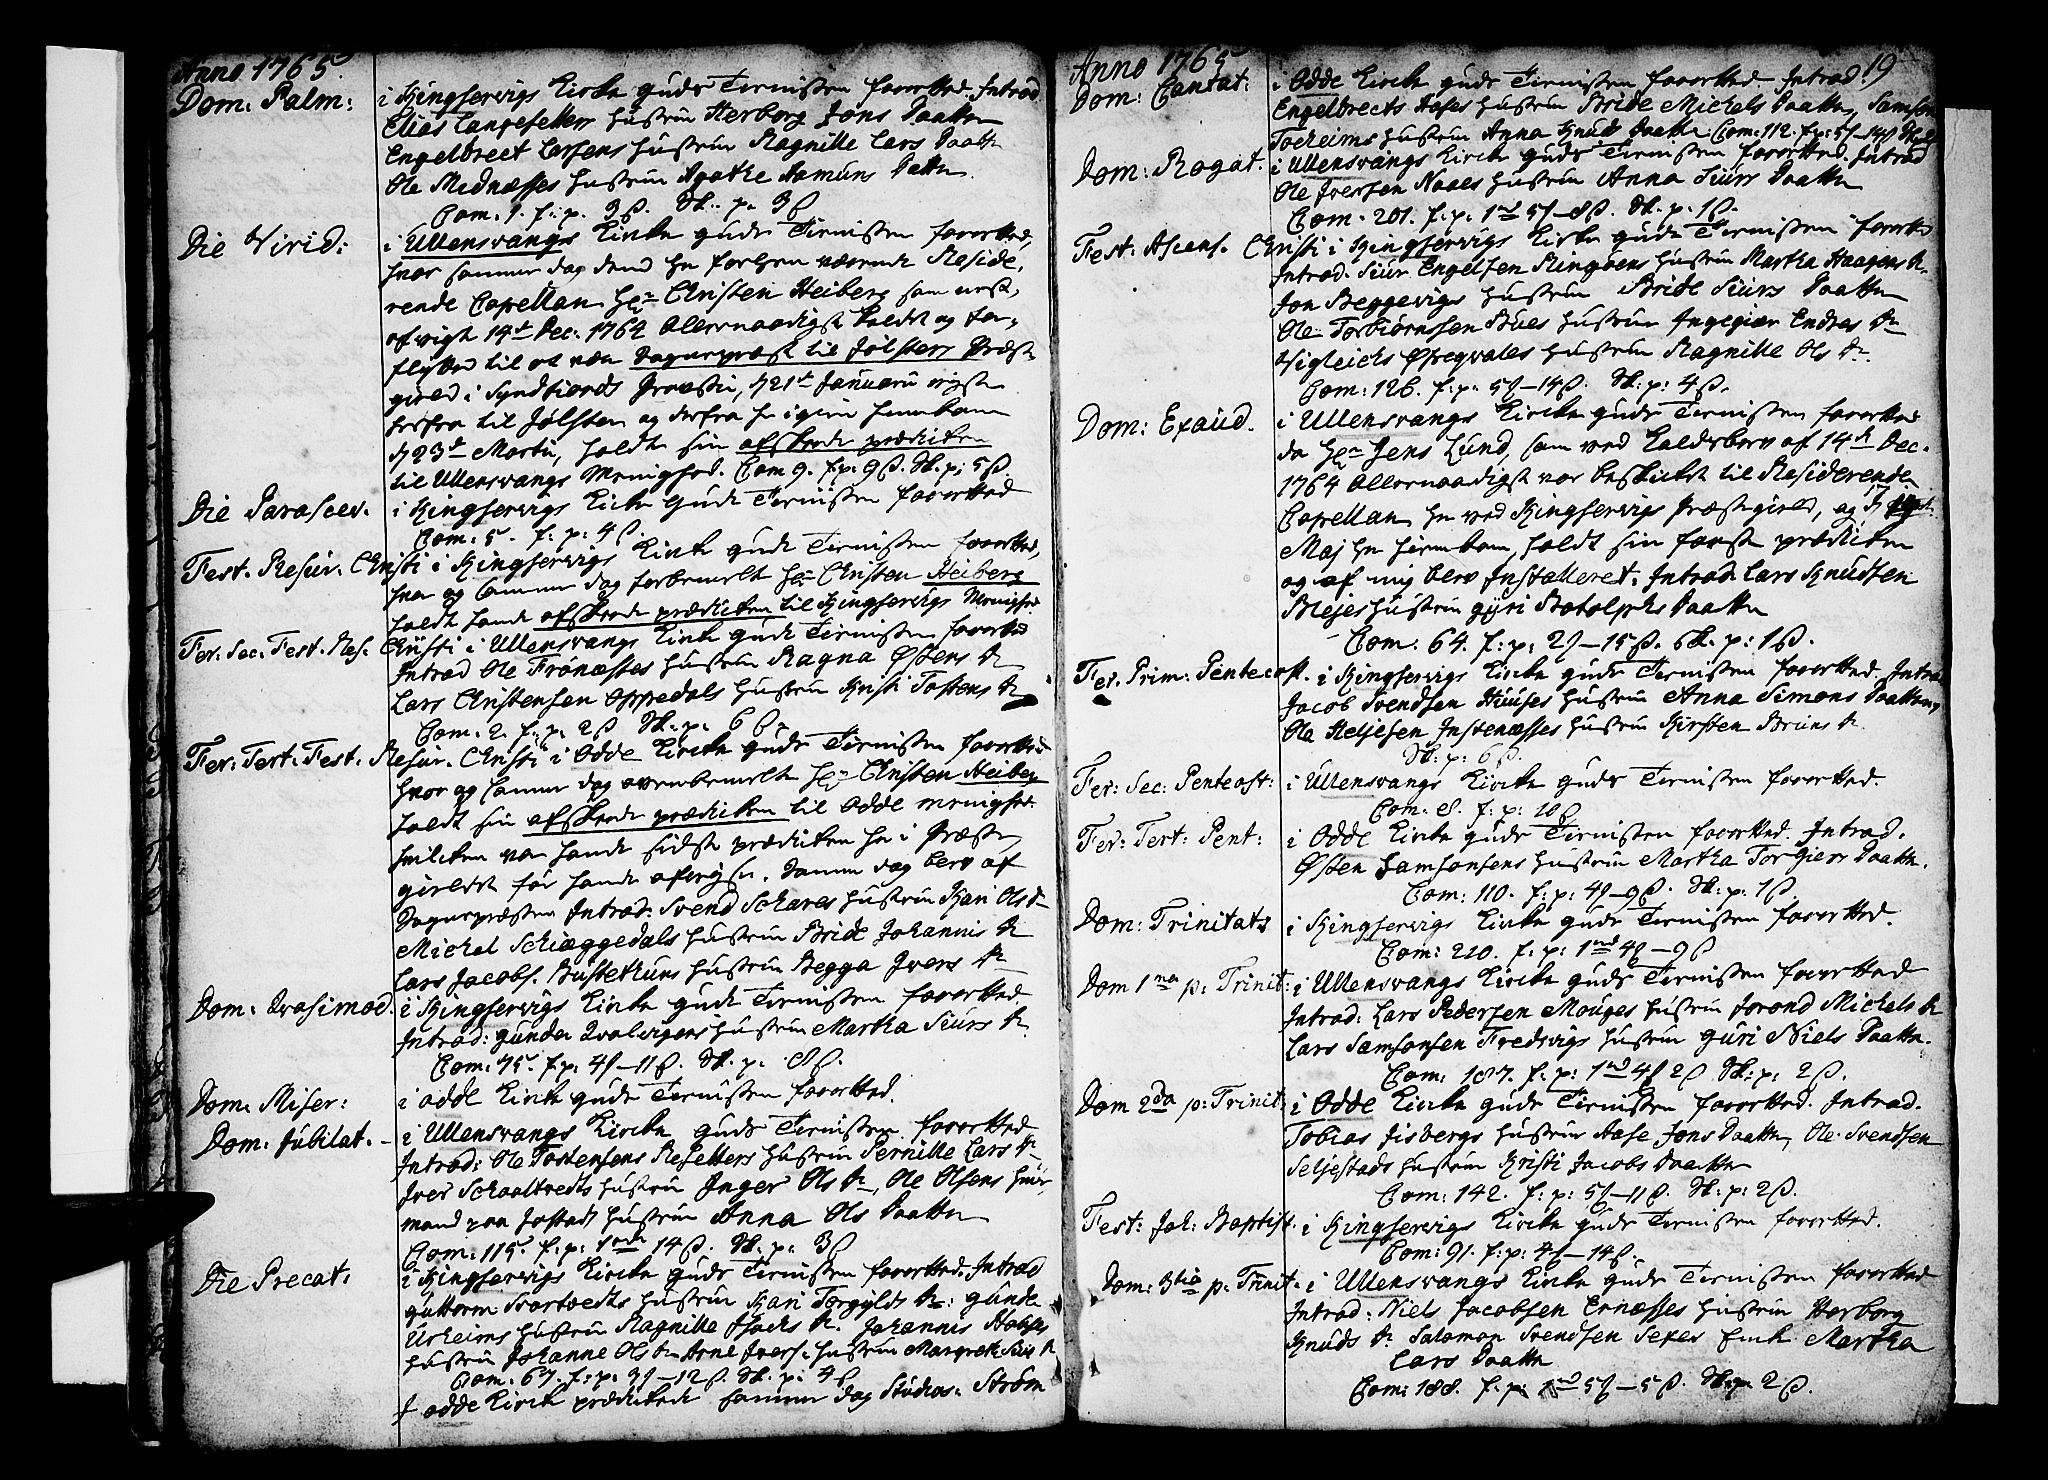 Anno 1765.
Dom: Palm: i Kingservigs Kircke guds Tienisten forretted. Introd
Elias Langesetters hustrue Herborg Jons Daatter
Engelbrect Larsens hustrue Ragnille Lars Daatter
Ole Mednæsses hustrue Agathe Aamuns Datter.
Com: 1. f: p. 3ß. Sk: p. 3ß
Die Virid: i Ullensvangs Kircke guds Tienisten forretted,
hvor sammer dag dend her forhen værende Reside,
rende Capellan Hr Christen Heiberg som nest,
afvigte 14de Dec: 1764 Allernaadigst kaldet og for,
flytted til at være Sogneprest til Jølsters Præste
gield i Syndfiords Provstie, d 21de Januarii reyste
herfra til Jølster og derfra her igien hiemkom
d 23de Martii, holdt sin afskeeds prædicken
til Ullensvangs Menighed. Com 9. f: p: 9ß. Sk. p: 5ß.
Die Parascev. i Kingservigs Kircke Guds Tienisten forretted
Com: 5. f: p: 4ß.
Fest. Resur. Christi i Kingservigs Kircke guds Tienisten forretted,
hvor og sammer dag forbemelte Hr Christen Heiberg
holdt hands afskeeds prædicken til Kingservigs Menighed
Fer. Sec: Fest. Res. Christi i Ullensvangs Kircke guds Tienisten forretted
Introd Ole Frønæsses hustrue Ragna Østens Dr
Lars Christensen Oppedals hustrue Kristi Tostens Dr
Com: 2. f: p: 2ß Sk: p: 6ß
Fer: Tert: Fest. Resur. Christi i Odde Kircke guds Tienisten forretted
hvor og sammer dag ovenbemelte Hr Christen Heiberg
holdt sin afskeeds prædicken til Odde menighed.
hvilcken var hands sidste prædicken her i Præste,
gieldet før hands afreyse. Samme dag blev af
Sognepresten Introd: Svend Schares hustrue Kari Ols Dr
Michel Schiæggedals hustrue Bride Johannis Dr
Lars Jacobs. Bustethuns hustrue Begga Ivers Dr
Dom: Qvasimod. i Kingservigs Kircke guds Tienisten forretted
Introd: Gunder Qvalvigens hustrue Martha Siurs Dr
Com: 75. f: p: 4ʃ–11ß. Sk. p: 8ß.
Dom: Miser: i Odde Kircke guds Tienisten forretted.
Dom: Jubilat. i Ullensvangs Kircke guds Tienisten forretted
Introd: Ole Tostensens Resetters hustrue Pernille Lars Dr
Iver Schaaltvedts hustrue Inger Ols Dr, Ole Olsens huus,
mand paa Jostad hustrue Anna Ols Daatter
Com: 115. f: p: 1 14ß. Sk. p: 3ß
Die Precat: i Kingservigs Kircke guds Tienisten forretted. Introd
Guttorm Svartvedts hustrue Kari Torgyls Dr: Gunder
Urheims hustrue Ragnille Isachs Dr. Johannis
hustrue Johanne Ols Dr Arne Ivers. hustrue Margrete Siurs Dr
Com: 67. f: p: 3ʃ–12ß. Sk. p: 4ß
I Odde Kircke prædickede sammer dag Studios: Strøm
Anno 1765 19
Dom: Cantat: i Odde Kircke guds Tienisten forretted. Introd:
Engelbrects Aases hustrue Bride Michels Daatter, Samson
Tocheims hustrue Anna Knuds Daatter Com: 112. f: p: 5ʃ–14ß
Dom: Rogat. i Ullensvangs Kircke guds Tienisten forretted. Introd
Ole Iversen Naaes hustrue Anna Siurs Daatter
Com: 201. f: p: 1rd 5ʃ–8ß. Sk. p: 1ß.
Fest: Ascens. Christi i Kingservigs Kircke guds Tienisten forretted
Introd. Siur Engelsen Ringøens hustrue Martha Haagens Dr.
Jon Beggevigs hustrue Bride Siurs Daatter
Ole Torbiørnsen Bues hustrue Ingegiær Endres Dr
Vigleichs Espeqvales hustrue Ragnille Ols Dr.
Com: 126. f: p: 5ʃ–14ß. Sk. p: 4ß.
Dom: Exaud. i Ullensvangs Kircke guds Tienisten forretted
da Hr Jens Lund, som ved Kaldsbrev af 14de Dec.
1764 Allernaadigst var beskicket til Residerende
Capellan her ved Kingservigs Præstegield, og d 17
Maj her hiemkom, holdt sin første prædicken
og af mig blev Installeret. Introd: Lars Knudsen
Blejes hustrue Gyri Botolphs Daatter
Com: 64. f: p: 2ʃ–15ß. Sk. p: 1ß.
Fer. Prim: Pentecost. i Kingservigs Kircke guds Tienisten forretted. Introd
Jacob Svendsen Huuses hustrue Anna Simons Daatter,
Ole Heljesen Instenæsses hustrue Kirsten Bruns Dr
Sk: p: 6ß.
Fer: Sec: Pentecost: i Ullensvangs Kircke guds Tienisten forretted.
Com: 8. f: p: 10ß
Fer: Tert: Pent: i Odde Kircke guds Tienisten forretted. Introd.
Østen Samsonsens hustrue Martha Torgiers Daatter.
Com: 110. f: p: 4ʃ–9ß. Sk: p: 1ß
Dom: Trinitats i Kingservigs Kircke guds Tienisten forretted.
Com: 210. f: p: 1rd 4ʃ–9ß
Dom 1ma p: Trinit: i Ullensvangs Kircke guds Tienisten forretted
Introd: Lars Pedersen Mouges hustrue Jorond Michels Dr
Lars Samsonsen Fredsvigs hustrue Guri Niels Daatter.
Com: 187. f: p: 1rd 4ʃ 2ß Sk: p: 2ß.
Dom 2da p: Trinit: i Odde Kircke guds Tienisten forretted. Introd.
Tobias Jisbergs hustrue Aase Jons Daatter, Ole Svendsen
Seljestads hustrue Kristi Jacobs Daatter
Com: 142. f: p: 5ʃ–11ß. Sk: p: 2ß.
Fest: Joh: Baptist. i Kingservigs Kircke guds Tienisten forretted.
Com: 91. f: p: 4ʃ–14ß.
Dom: 3tia p: Trinit: i Ullensvangs Kircke guds Tienisten forretted
Introd: Niels Jacobsen Ernæsses hustrue Herborg
Knuds Dr Salomon Svendsen Sexes Enke Martha
Lars Daatter
Com: 188. f: p: 1rd 5ʃ–5ß. Sk: p: 2ß.